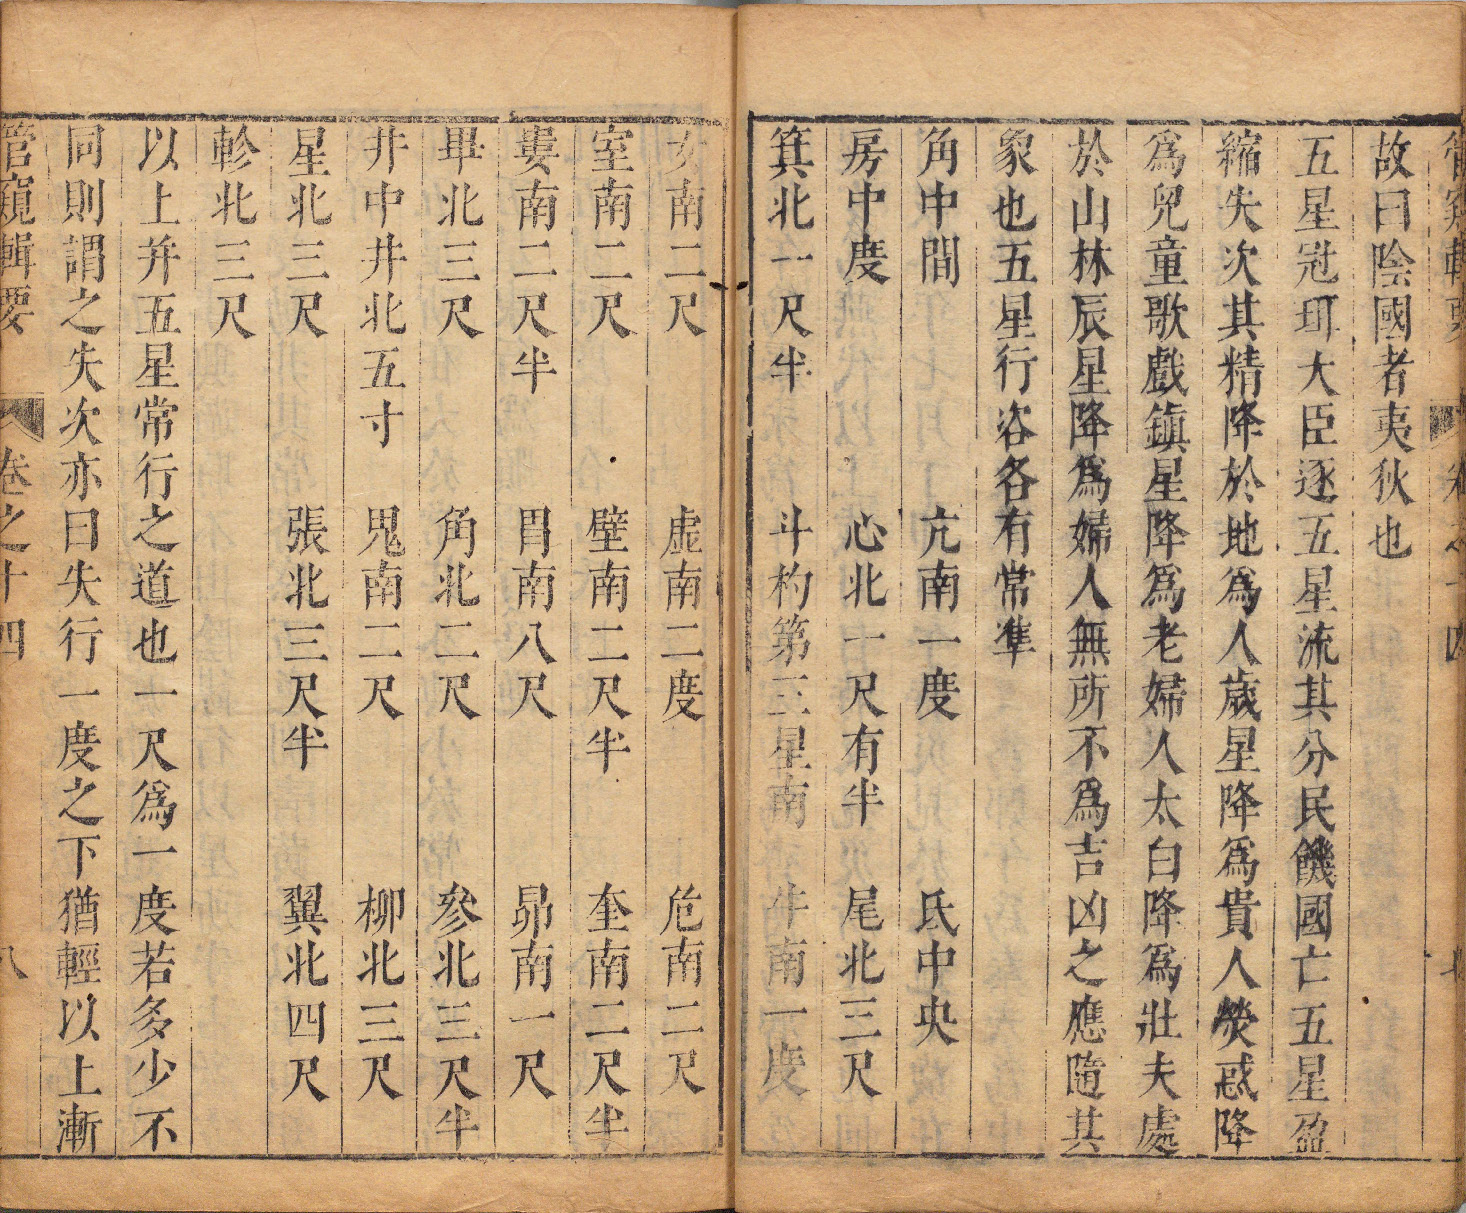 管窺輯要 卷之十四 七
故曰陰國者夷狄也
五星冠珥大臣逐五星流其分民饑國亡五星盈
縮失次其精降於地為人歲星降為貴人熒惑降
為兒童歌戲鎮星降為老婦人太白降為壯夫處
於山林辰星降為婦人無所不為吉凶之應隨其
象也五星行咨各有常準
角中間 亢南一度 氐中央
房中度 心北一尺有半 尾北三尺
箕北一尺半 斗杓第三星南 牛南一度
女南二尺 虛南二度 危南二尺
室南二尺 壁南二尺半 奎南二尺半
婁南二尺半 胃南八尺 昴南一尺
畢北三尺 角北二尺 參北三尺半
井中井北五寸 鬼南二尺 柳北三尺
星北三尺 張北三尺半 翼北四尺
軫北三尺
以上并五星常行之道也一尺為一度若多少不
同則謂之失次亦曰失行一度之下猶輕以上漸
管窺輯要 卷之十四 八